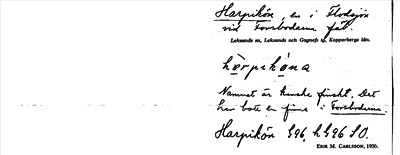 Harpikön, en i Flodsjön
vid Forsbodarna fäb.
Leksands sn, Leksands och Gagnefs tg, Kopparbergs län.
hàrpıkö̀na
Namnet är kanske finskt. Det
har bott en finne i Forsbodarna.
Harpikön 696. h 696 SO.
ERIK M. CARLSSON, 1930.